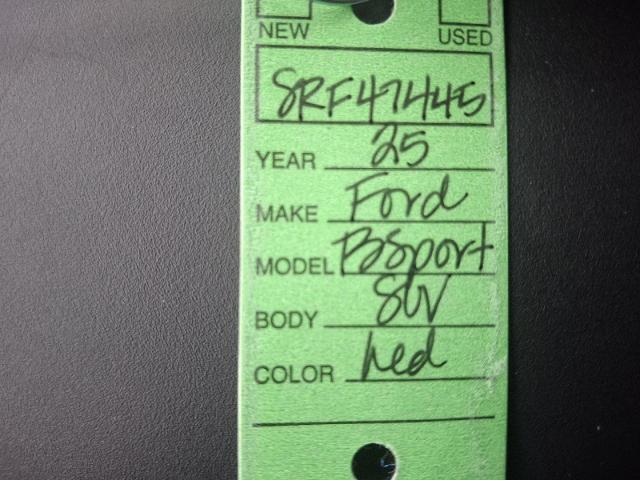 NEW USED
SRF47445
YEAR 25
MAKE Ford
MODEL BSport
BODY SUV
COLOR Red